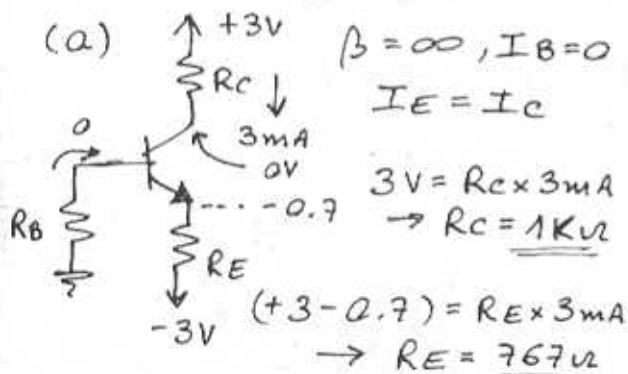 (a)
+3V
RC
3mA
0V
0
RB
-----0.7
RE
-3V
β = ∞, IB = 0
IE = IC
3V = RC × 3mA
→ RC = 1KΩ
(+3-0.7) = RE × 3mA
→ RE = 767Ω